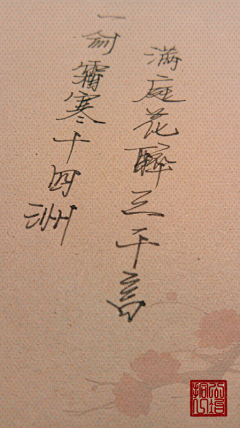 滿庭花醉三千客
一剑霜寒十四洲